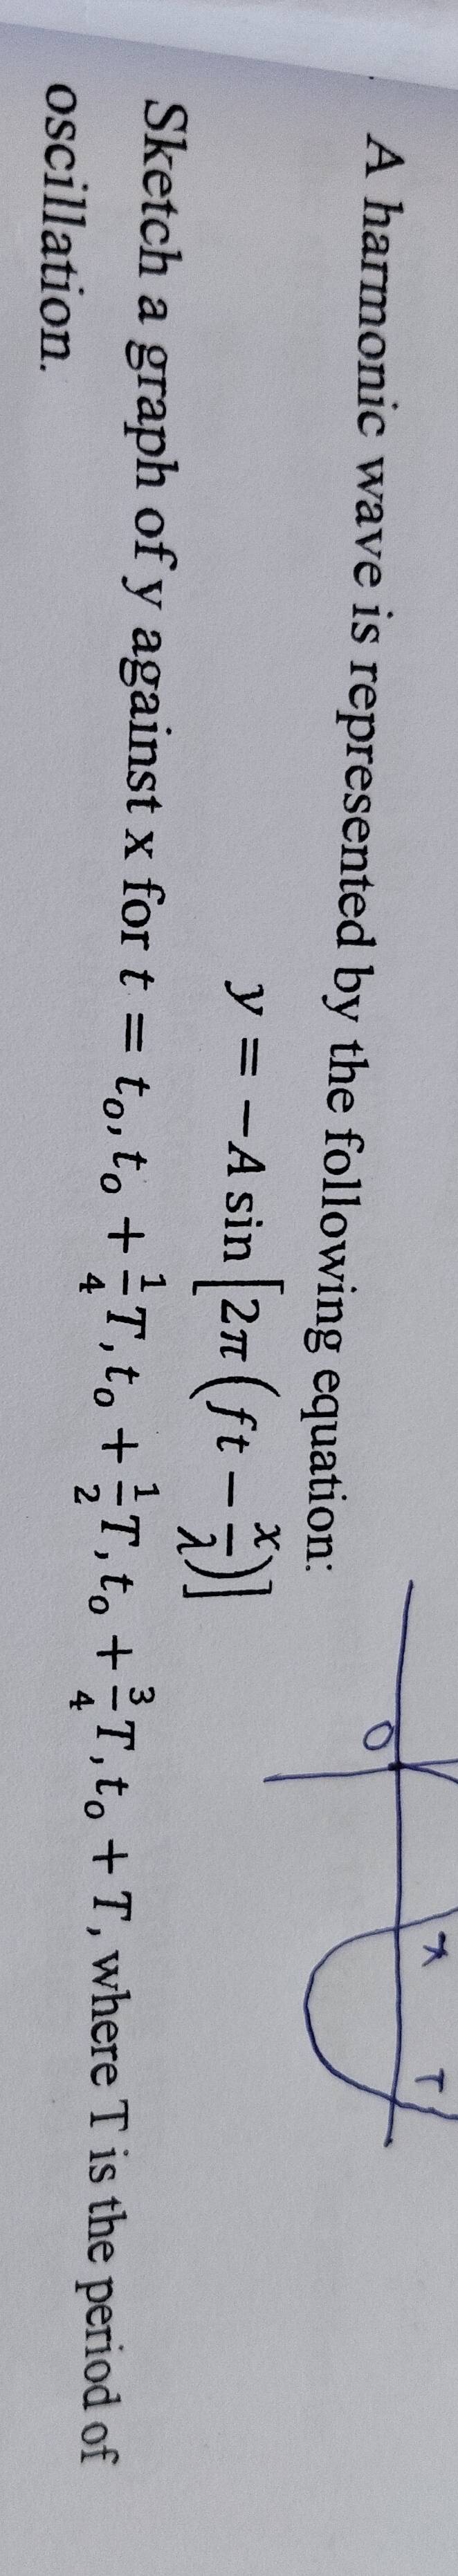 A harmonic wave is represented by the following equation:
y = −A sin [2π (ft − x/λ)]
Sketch a graph of y against x for t = t₀, t₀ + 1/4 T, t₀ + 1/2 T, t₀ + 3/4 T, t₀ + T, where T is the period of
oscillation.
O
x
T